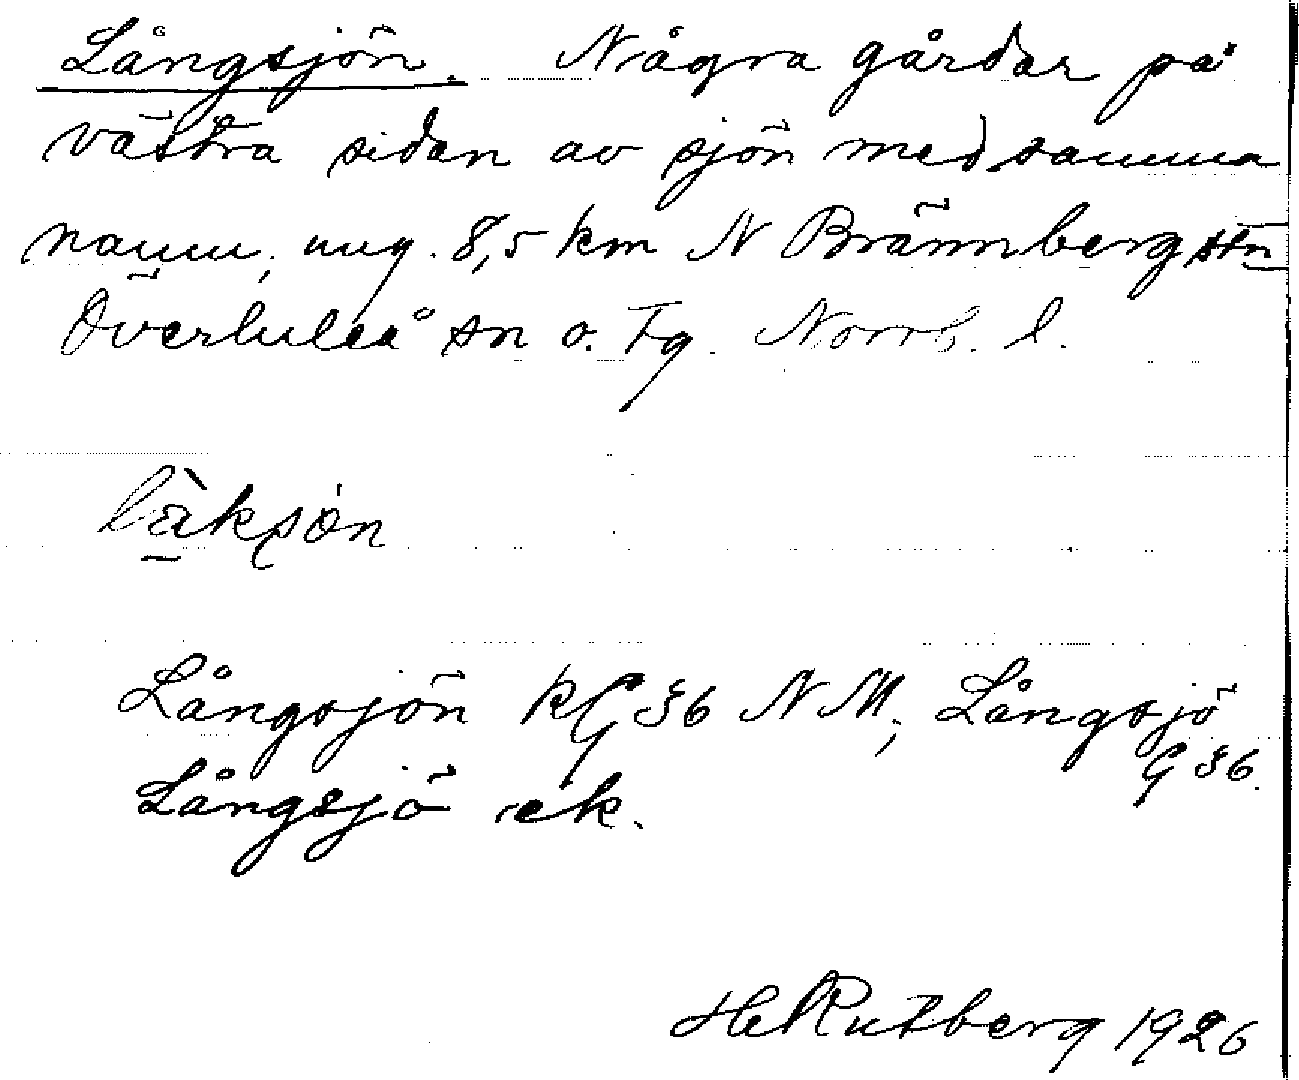 Långsjön. Några gårdar på
västra sidan av sjön med samma
namn, ung. 8,5 km N Brännberg stn
Överluleå sn o. Tg. Norrb. l.
làksjòn
Långsjön kG §6 NM; Långsjö
G §6.
Långsjö ek.
HeRutberg 1926